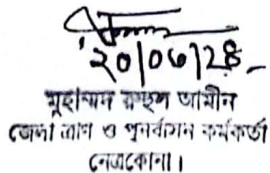 ২০/০৬/২৪
মুহাম্মদ রুহুল আমীন
জেলা ত্রাণ ও পুনর্বাসন কর্মকর্তা
নেত্রকোনা।